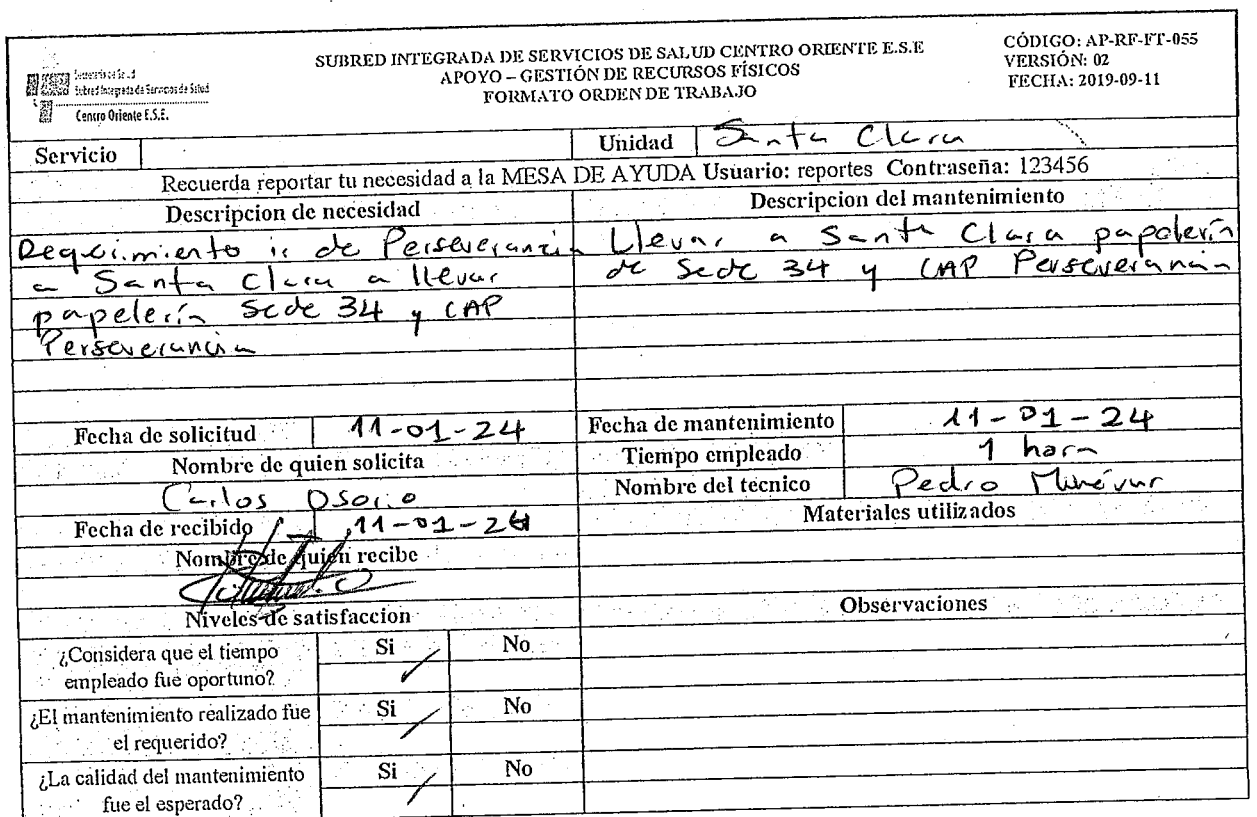 SUBRED INTEGRADA DE SERVICIOS DE SALUD CENTRO ORIENTE E.S.E
APOYO – GESTIÓN DE RECURSOS FÍSICOS
FORMATO ORDEN DE TRABAJO
CÓDIGO: AP-RF-FT-055
VERSIÓN: 02
FECHA: 2019-09-11
Subred Integrada de Servicios de Salud
Centro Oriente E.S.E.
Servicio
Unidad Santa Clara
Recuerda reportar tu necesidad a la MESA DE AYUDA Usuario: reportes Contraseña: 123456
Descripcion de necesidad
ir de Perseverancia
a Santa Clara a llevar
papelería Sede 34 y CAP
Perseverancia
Descripcion del mantenimiento
Llevar a Santa Clara papelería
de Sede 34 y CAP Perseverancia
Fecha de solicitud 11-01-24
Nombre de quien solicita
Carlos Osorio
Fecha de recibido 11-01-24
Nombre de quien recibe
Fecha de mantenimiento 11-01-24
Tiempo empleado 1 hora
Nombre del tecnico Pedro
Materiales utilizados
Niveles de satisfaccion
Observaciones
¿Considera que el tiempo
empleado fue oportuno?
Si No
¿El mantenimiento realizado fue
el requerido?
Si No
¿La calidad del mantenimiento
fue el esperado?
Si No